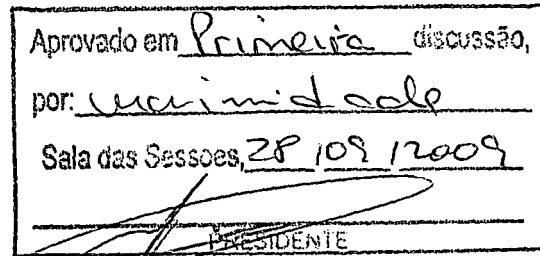 Aprovado em Primeira discussão,
por: unanimidade
Sala das Sessões, 28 / 09 / 2009
PRESIDENTE